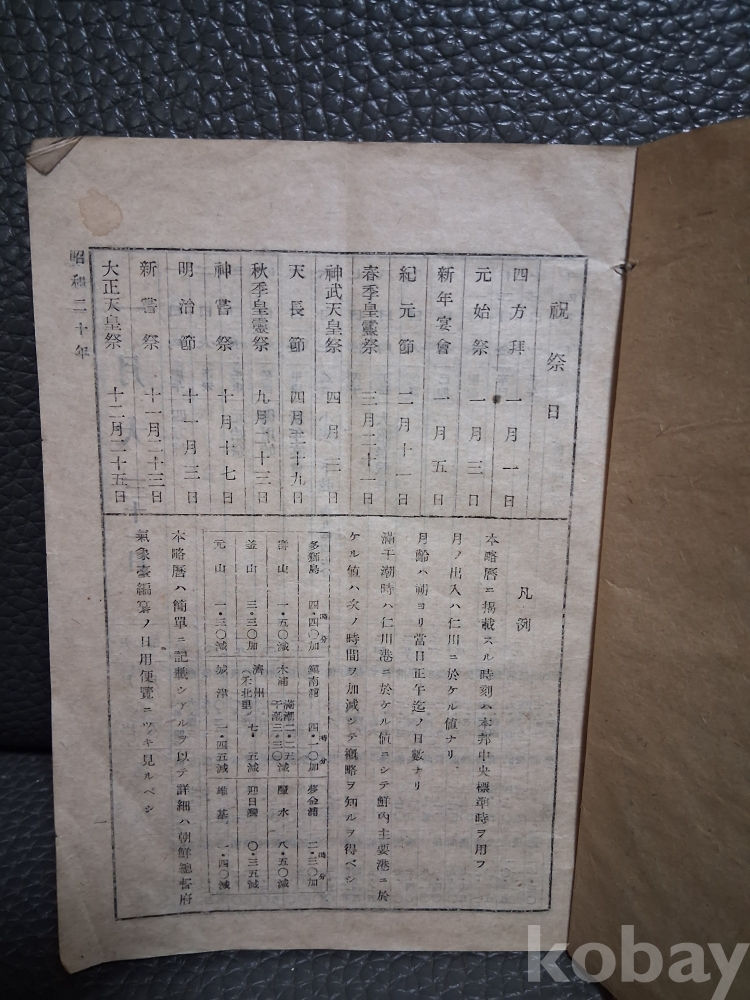 祝祭日
四方拜 一月一日
元始祭 一月三日
新年宴會 一月五日
紀元節 二月十一日
春季皇靈祭 三月二十一日
神武天皇祭 四月三日
天長節 四月二十九日
秋季皇靈祭 九月二十三日
神嘗祭 十月十七日
明治節 十一月三日
新嘗祭 十一月二十三日
大正天皇祭 十二月二十五日
昭和二十年
凡例
本略曆ニ揭載スル時刻ハ本邦中央標準時ヲ用フ
月ノ出入ハ仁川ニ於ケル値ナリ
月齡ハ朔ヨリ當日正午迄ノ日數ナリ
滿干潮時ハ仁川港ニ於ケル値ニシテ鮮內主要港ニ於
ケル値ハ次ノ時間ヲ加減シテ槪略ヲ知ルヲ得ベシ
多獅島 四・四〇加 鎭南浦 四・一〇加 夢金浦 二・三〇加
時分 時分 時分
一・五〇減 木浦 滿潮二・二五減 干潮三・三〇 麗水 八・五〇減
釜山 三・三〇加 濟州(禾北里) 七・五減 迎日灣 〇・三五減
元山 一・三〇減 城津 一・四五減 雄基 一・四〇減
本略曆ハ簡單ニ記載シアルヲ以テ詳細ハ朝鮮總督府
氣象臺編纂ノ日用便覽ニツキ見ルベシ
一
kobay